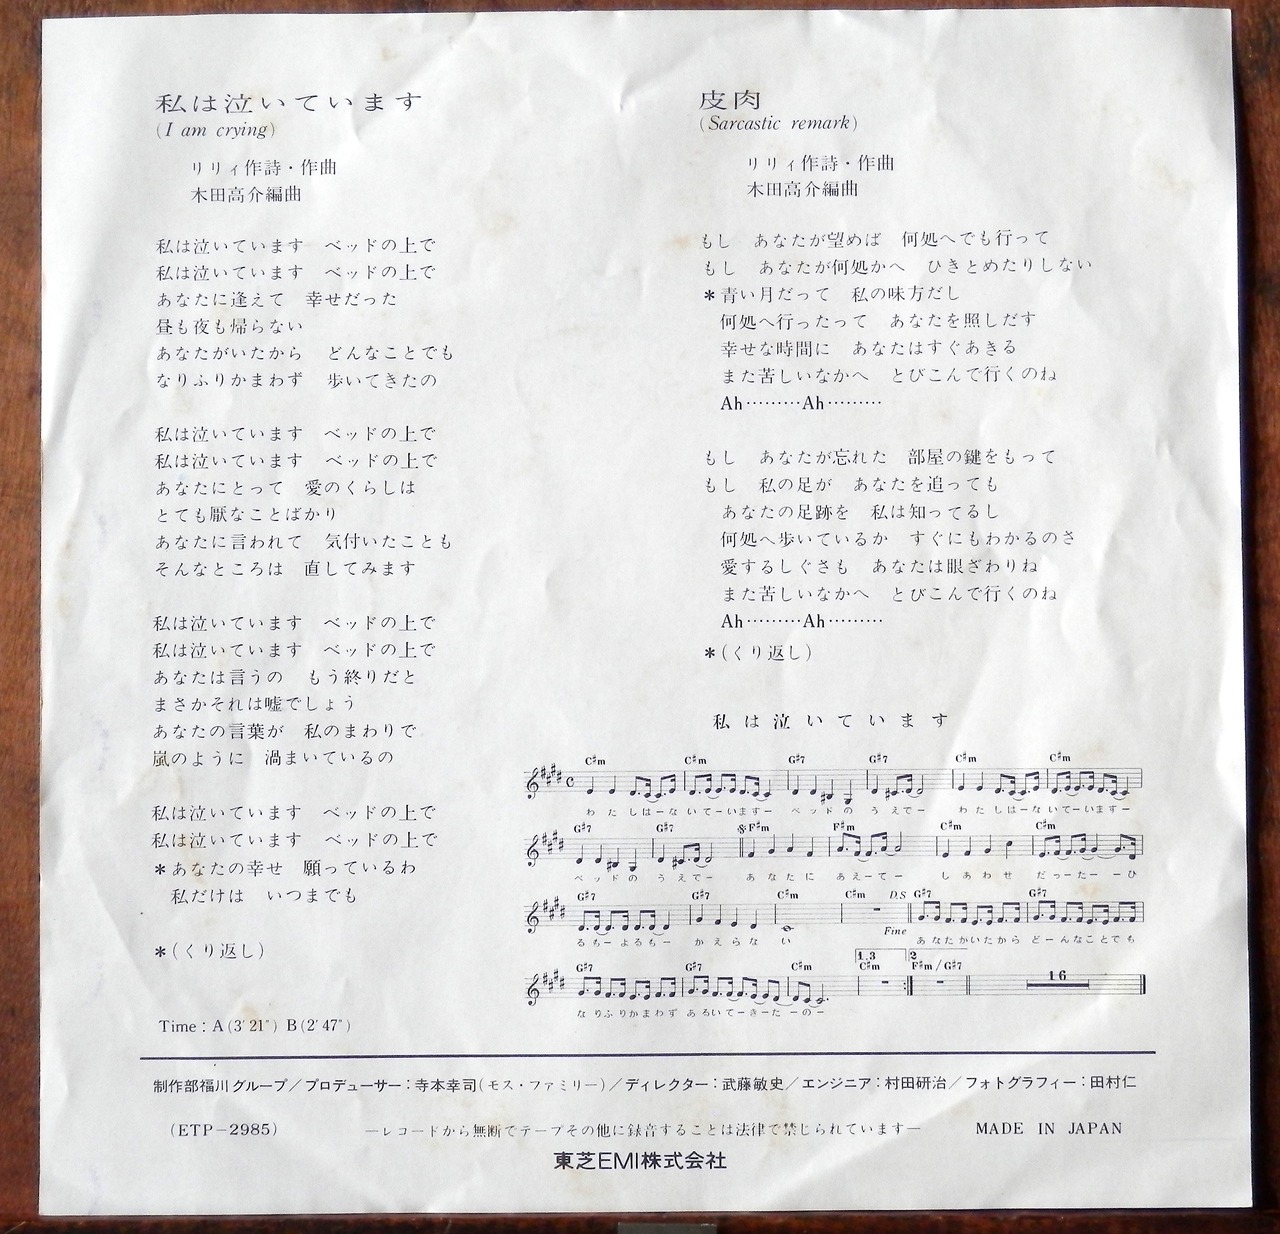 私は泣いています
(I am crying)
リリィ作詩・作曲
木田高介編曲
私は泣いています　ベッドの上で
私は泣いています　ベッドの上で
あなたに逢えて　幸せだった
昼も夜も帰らない
あなたがいたから　どんなことでも
なりふりかまわず　歩いてきたの
私は泣いています　ベッドの上で
私は泣いています　ベッドの上で
あなたにとって　愛のくらしは
とても厭なことばかり
あなたに言われて　気付いたことも
そんなところは　直してみます
私は泣いています　ベッドの上で
私は泣いています　ベッドの上で
あなたは言うの　もう終りだと
まさかそれは嘘でしょう
あなたの言葉が　私のまわりで
嵐のように　渦まいているの
私は泣いています　ベッドの上で
私は泣いています　ベッドの上で
*あなたの幸せ　願っているわ
私だけは　いつまでも
*(くり返し)
Time : A (3′21″) B (2′47″)
皮肉
(Sarcastic remark)
リリィ作詩・作曲
木田高介編曲
もし　あなたが望めば　何処へでも行って
もし　あなたが何処かへ　ひきとめたりしない
*青い月だって　私の味方だし
何処へ行ったって　あなたを照しだす
幸せな時間に　あなたはすぐあきる
また苦しいなかへ　とびこんで行くのね
Ah………Ah………
もし　あなたが忘れた　部屋の鍵をもって
もし　私の足が　あなたを追っても
あなたの足跡を　私は知ってるし
何処へ歩いているか　すぐにもわかるのさ
愛するしぐさも　あなたは眼ざわりね
また苦しいなかへ　とびこんで行くのね
Ah………Ah………
*(くり返し)
私は泣いています
C♯m C♯m G♯7 G♯7 C♯m C♯m
わ た しはーな いてーいますー ベ ッ ド の う えでー わ た しはーな いてーいますー
G♯7 G♯7 F♯m F♯m C♯m C♯m
ベ ッ ド の う えでー あ な た に あ えーてー し あ わ せ だ っーたー ーひ
G♯7 G♯7 C♯m C♯m D.S G♯7 G♯7
Fine
る もー よ る もー か え ら な い あ な た が い た か ら ど ーん な こ と で も
G♯7 G♯7 C♯m 1,3 C♯m 2 F♯m/G♯7 16
な り ふ り か ま わ ず あ る い てーきーた ーのー
制作部福川グループ／プロデューサー：寺本幸司(モス・ファミリー)／ディレクター：武藤敏史／エンジニア：村田研治／フォトグラフィー：田村仁
(ETP−2985) ―レコードから無断でテープその他に録音することは法律で禁じられています― MADE IN JAPAN
東芝EMI株式会社